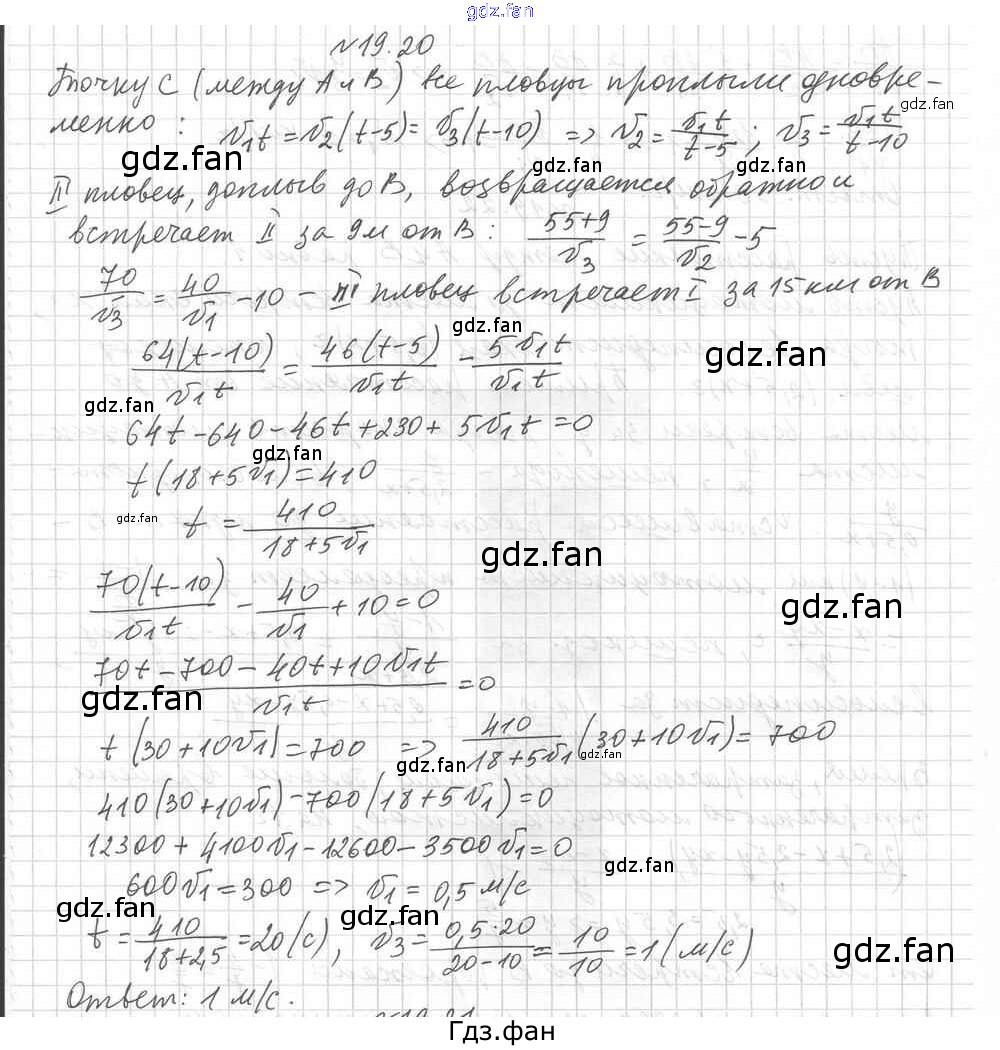 gdz.fan
№19.20
Точку С (между А и В) все пловцы проплыли одновре-
gdz.fan
менно: v₁t = v₂(t-5) = v₃(t-10) => v₂ = v₁t/(t-5); v₃ = v₁t/(t-10)
gdz.fan gdz.fan gdz.fan
III пловец, доплыв до В, возвращается обратно и
встречает II за 9м от В: (55+9)/v₃ = (55-9)/v₂ - 5
gdz.fan
70/v₃ = 40/v₁ - 10 - III пловец встречает I за 15 км от В
gdz.fan
64(t-10)/v₁t = 46(t-5)/v₁t - 5v₁t/v₁t
gdz.fan
gdz.fan
64t - 640 - 46t + 230 + 5v₁t = 0
t(18+5v₁) = 410
gdz.fan
t = 410/(18+5v₁)
gdz.fan
70(t-10)/v₁t - 40/v₁ + 10 = 0
gdz.fan
(70t - 700 - 40t + 10v₁t)/v₁t = 0
gdz.fan
t(30+10v₁) = 700 => 410/(18+5v₁) (30+10v₁) = 700
gdz.fan gdz.fan
410(30+10v₁) - 700(18+5v₁) = 0
12300 + 4100v₁ - 12600 - 3500v₁ = 0
gdz.fan
600v₁ = 300 => v₁ = 0,5 м/с
gdz.fan gdz.fan
t = 410/(18+2,5) = 20(с), v₃ = 0,5·20/(20-10) = 10/10 = 1(м/с)
gdz.fan
Ответ: 1 м/с.
Гдз.фан